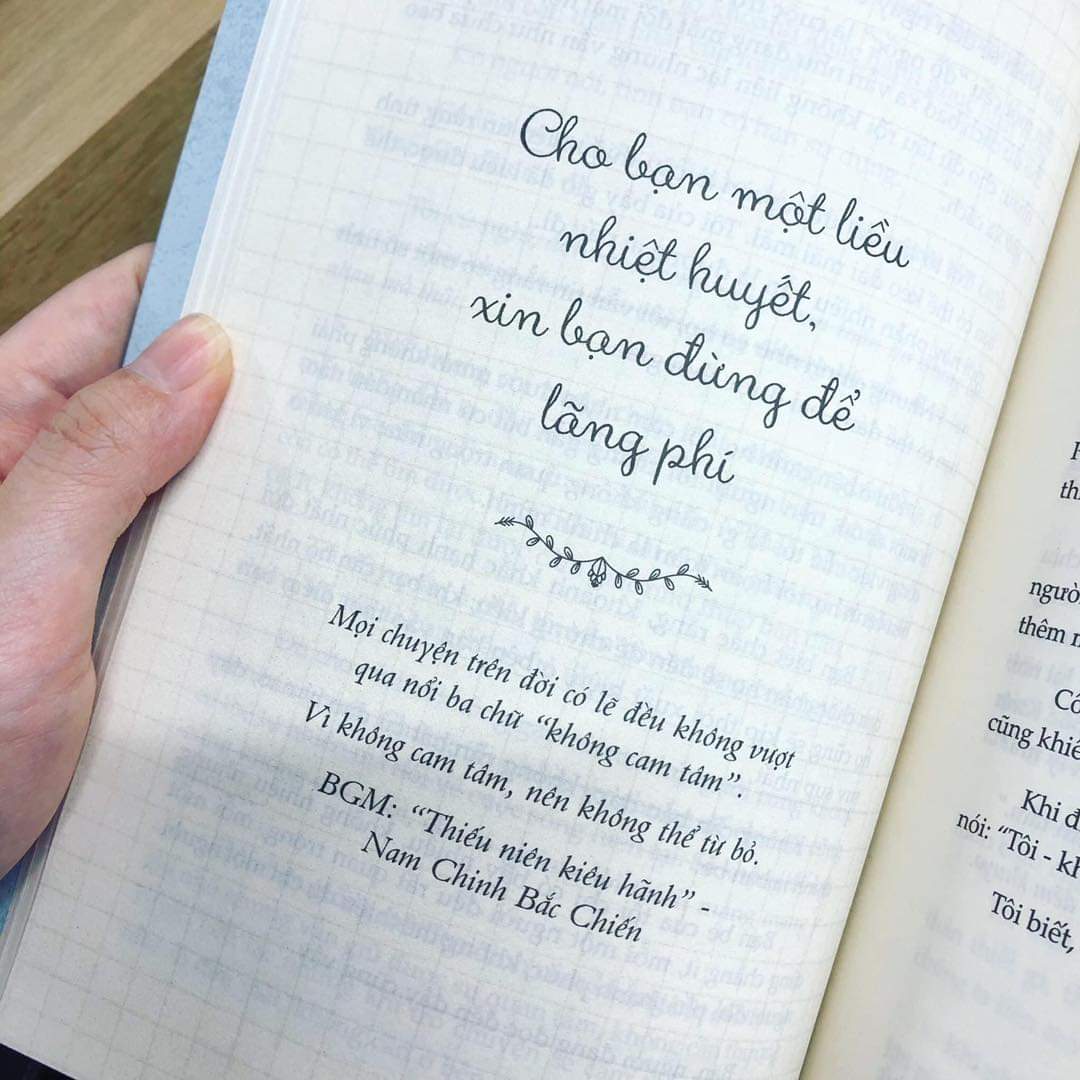 Cho bạn một liều
nhiệt huyết,
xin bạn đừng để
lãng phí
Mọi chuyện trên đời có lẽ đều không vượt
qua nổi ba chữ “không cam tâm”.
Vì không cam tâm, nên không thể từ bỏ.
BGM: “Thiếu niên kiêu hãnh” -
Nam Chinh Bắc Chiến
ngườ
thêm
cũng khiế
Khi đ
nói: “Tôi - kh
Tôi biết,